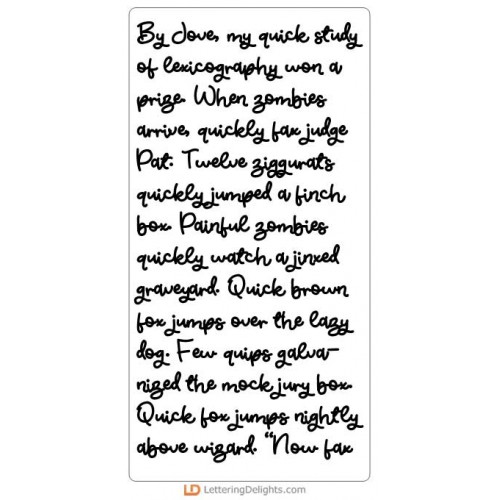 By Jove, my quick study
of lexicography won a
prize. When zombies
arrive, quickly fax judge
Pat. Twelve ziggurats
quickly jumped a finch
box. Painful zombies
quickly watch a jinxed
graveyard. Quick brown
fox jumps over the lazy
dog. Few quips galva-
nized the mock jury box.
Quick fox jumps nightly
above wizard. "Now fax
LD LetteringDelights.com